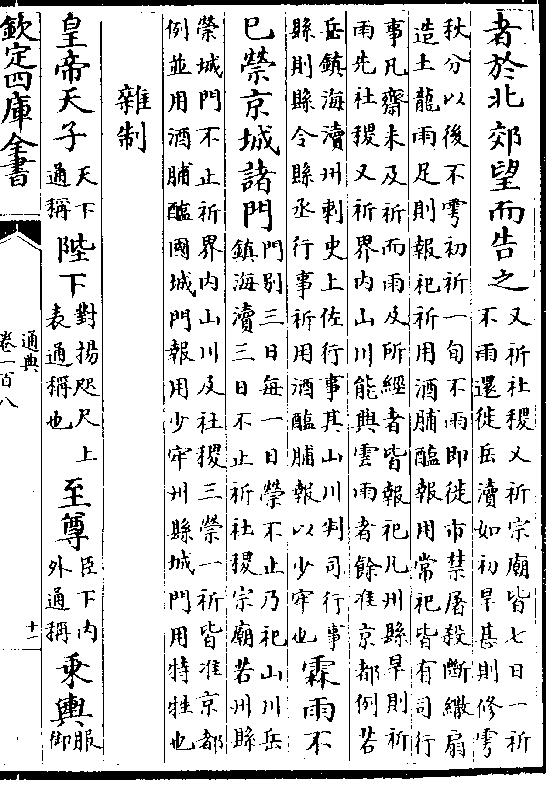 者於北郊望而告之
又祈社稷又祈宗廟皆七日一祈
不雨還徙岳瀆如初旱甚則修雩
秋分以後不雩初祈一旬不雨即徙市禁屠殺斷繖扇
造土龍雨足則報祀祈用酒脯醢報用常祀皆有司行
事凡齋未及祈而雨及所經者皆報祀凡州縣旱則祈
雨先社稷又祈界内山川能興雲雨者餘准京都例若
岳鎮海瀆州刺史上佐行事其山川判司行事
縣則縣令縣丞行事祈用酒醢脯報以少牢也
霖雨不
已禜京城諸門
門別三日每一日禜不止乃祀山川岳
鎮海瀆三日不止祈社稷宗廟若州縣
禜城門不止祈界内山川及社稷三禜一祈皆准京都
例並用酒脯醢國城門報用少牢州縣城門用特牲也
雜制
皇帝天子
天下
通稱
陛下
對揚咫尺上
表通稱也
至尊
臣下内
外通稱
乘輿
服
御
欽定四庫全書
通典
卷一百八
十一